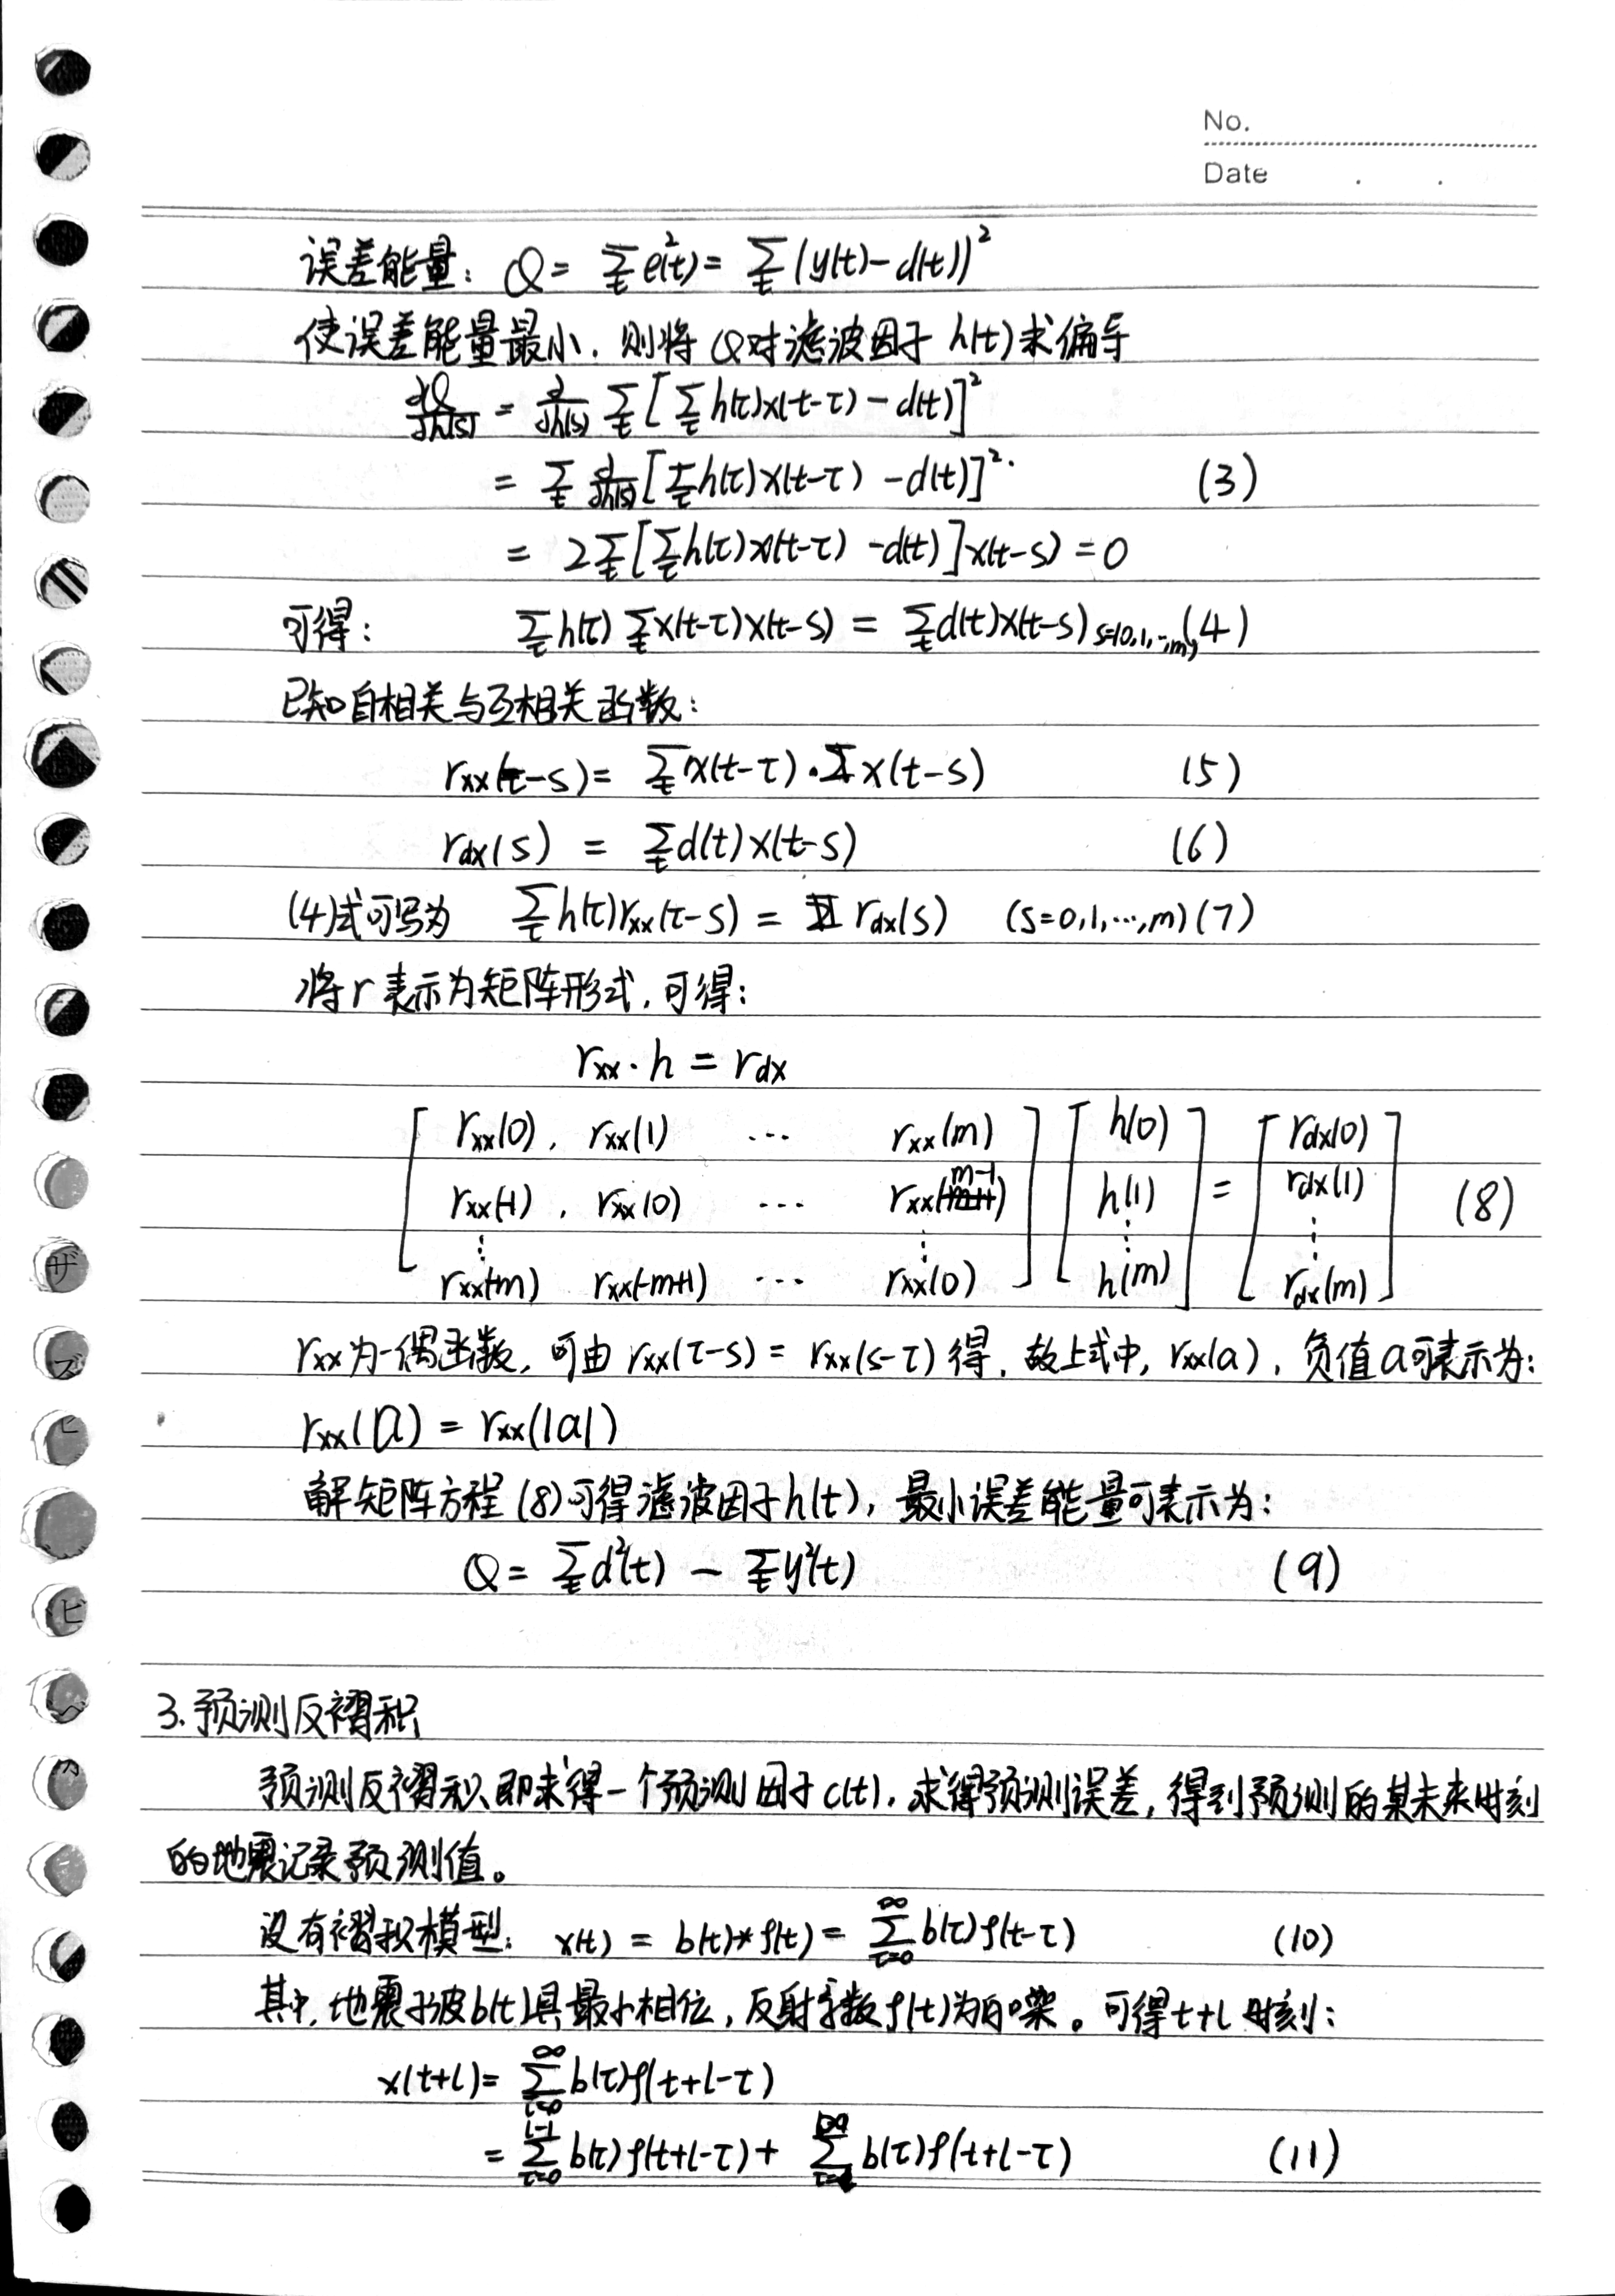 No.
Date . .
误差能量: Q = ∑_t e²(t) = ∑_t (y(t)-d(t))²
使误差能量最小, 则将 Q对滤波因子 h(t) 求偏导
∂Q/∂h(s) = ∂/∂h(s) ∑_t [∑_τ h(τ)x(t-τ) - d(t)]²
= ∑_t ∂/∂h(s) [∑_τ h(τ)x(t-τ) - d(t)]² (3)
= 2∑_t [∑_τ h(τ)x(t-τ) - d(t)]x(t-s) = 0
可得: ∑_τ h(τ) ∑_t x(t-τ)x(t-s) = ∑_t d(t)x(t-s) s=(0,1,…,m) (4)
已知自相关与互相关函数:
r_xx(τ-s) = ∑_t x(t-τ)·x(t-s) (5)
r_dx(s) = ∑_t d(t)x(t-s) (6)
(4)式可写为 ∑_τ h(τ)r_xx(τ-s) = r_dx(s) (s=0,1,…,m) (7)
将r表示为矩阵形式, 可得:
r_xx · h = r_dx
[ r_xx(0), r_xx(1) … r_xx(m) ] [ h(0) ] [ r_dx(0) ]
[ r_xx(-1), r_xx(0) … r_xx(m-1) ] [ h(1) ] = [ r_dx(1) ] (8)
⋮ ⋮ ⋮ ⋮
[ r_xx(-m) r_xx(-m+1) … r_xx(0) ] [ h(m) ] [ r_dx(m) ]
r_xx为一偶函数, 可由 r_xx(τ-s) = r_xx(s-τ) 得, 故上式中, r_xx(a), 负值a可表示为:
r_xx(a) = r_xx(|a|)
解矩阵方程 (8)可得滤波因子h(t), 最小误差能量可表示为:
Q = ∑_t d²(t) - ∑_t y²(t) (9)
3. 预测反褶积
预测反褶积即求得一个预测因子 c(t), 求得预测误差, 得到预测的某未来时刻
的地震记录预测值。
设有褶积模型: x(t) = b(t)*ρ(t) = ∑_{τ=0}^{∞} b(τ)ρ(t-τ) (10)
其中, 地震子波b(t)具最小相位, 反射系数ρ(t)为白噪。可得t+l时刻:
x(t+l) = ∑_{τ=0}^{∞} b(τ)ρ(t+l-τ)
= ∑_{τ=0}^{l-1} b(τ)ρ(t+l-τ) + ∑_{τ=l}^{∞} b(τ)ρ(t+l-τ) (11)